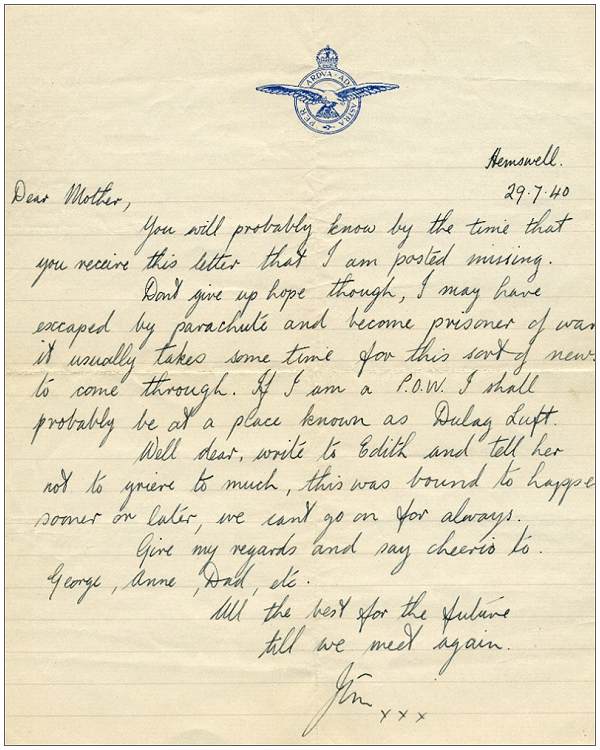 PER ARDVA AD ASTRA
Hemswell.
29.7.40
Dear Mother,
You will probably know by the time that
you receive this letter that I am posted missing.
Dont give up hope though, I may have
escaped by parachute and become prisoner of war
it usually takes some time for this sort of news
to come through. If I am a P.O.W. I shall
probably be at a place known as Dulag Luft.
Well dear, write to Edith and tell her
not to grieve to much, this was bound to happe
sooner or later, we cant go on for always.
Give my regards and say cheerio to.
George, Anne, Dad, etc.
All the best for the future
till we meet again.
Jim xxx